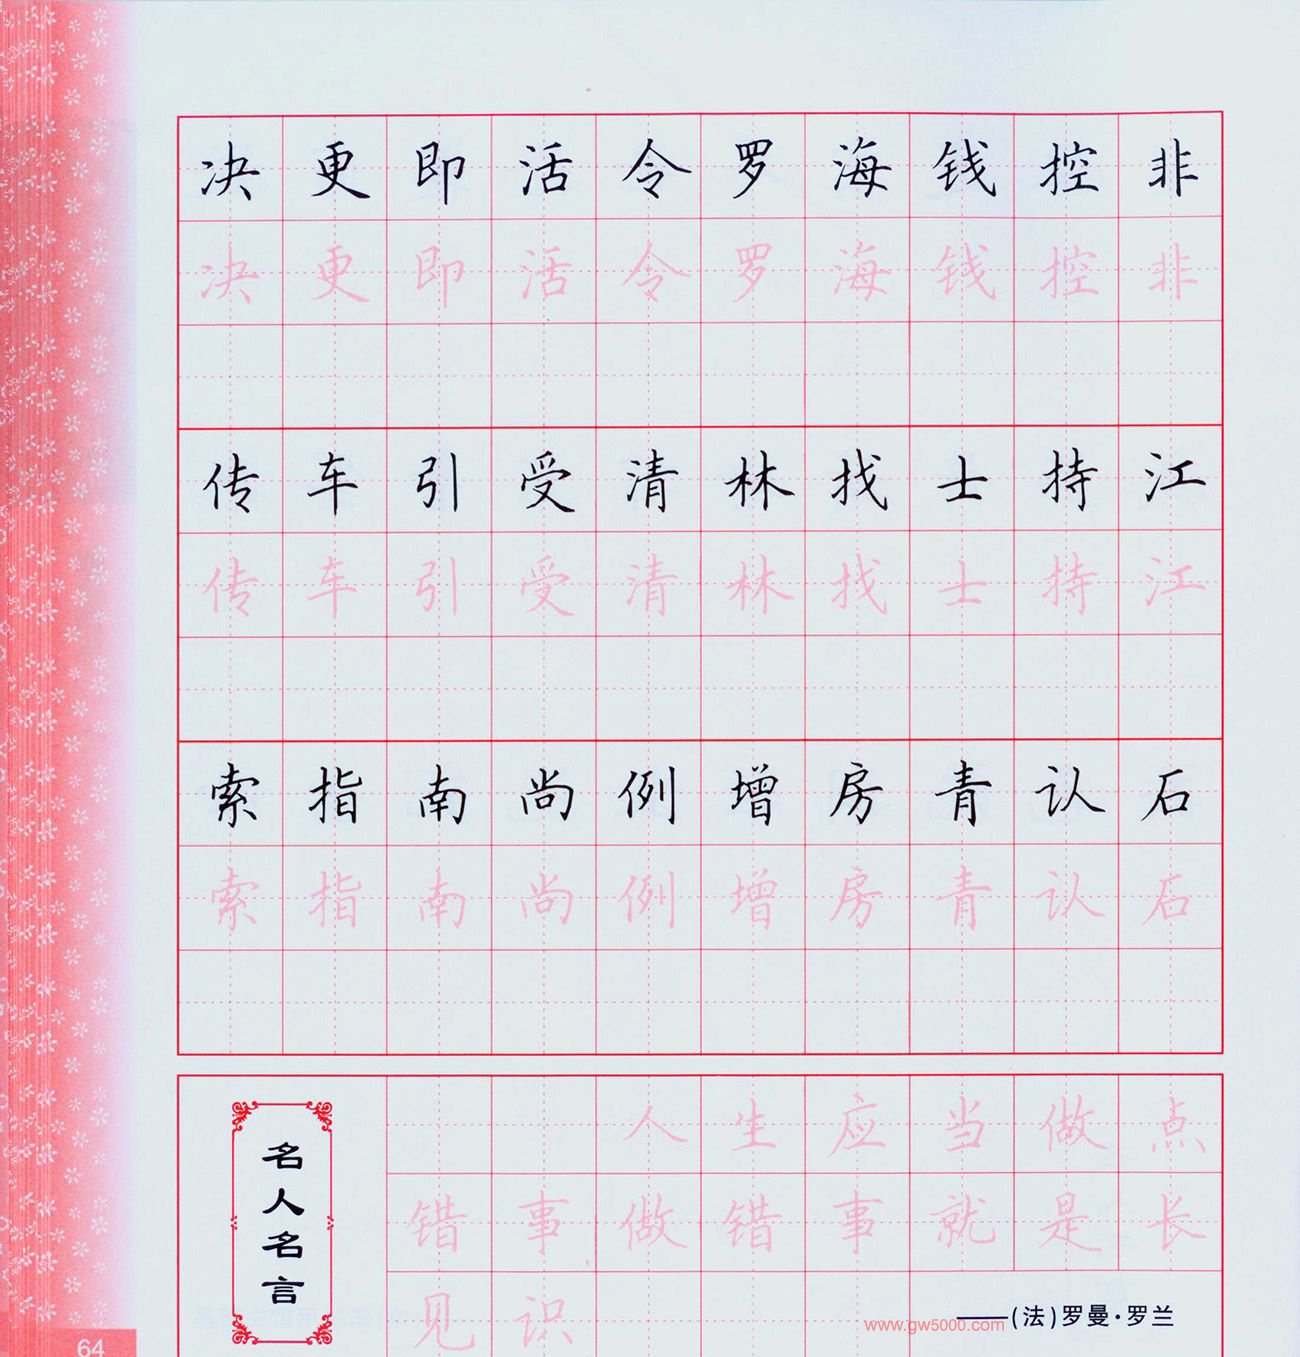 决更即活令罗海钱控非
决更即活令罗海钱控非
传车引受清林找士持江
传车引受清林找士持江
索指南尚例增房青认石
索指南尚例增房青认石
名人名言
人生应当做点
错事做错事就是长
见识
——(法)罗曼·罗兰
www.gw5000.com
64